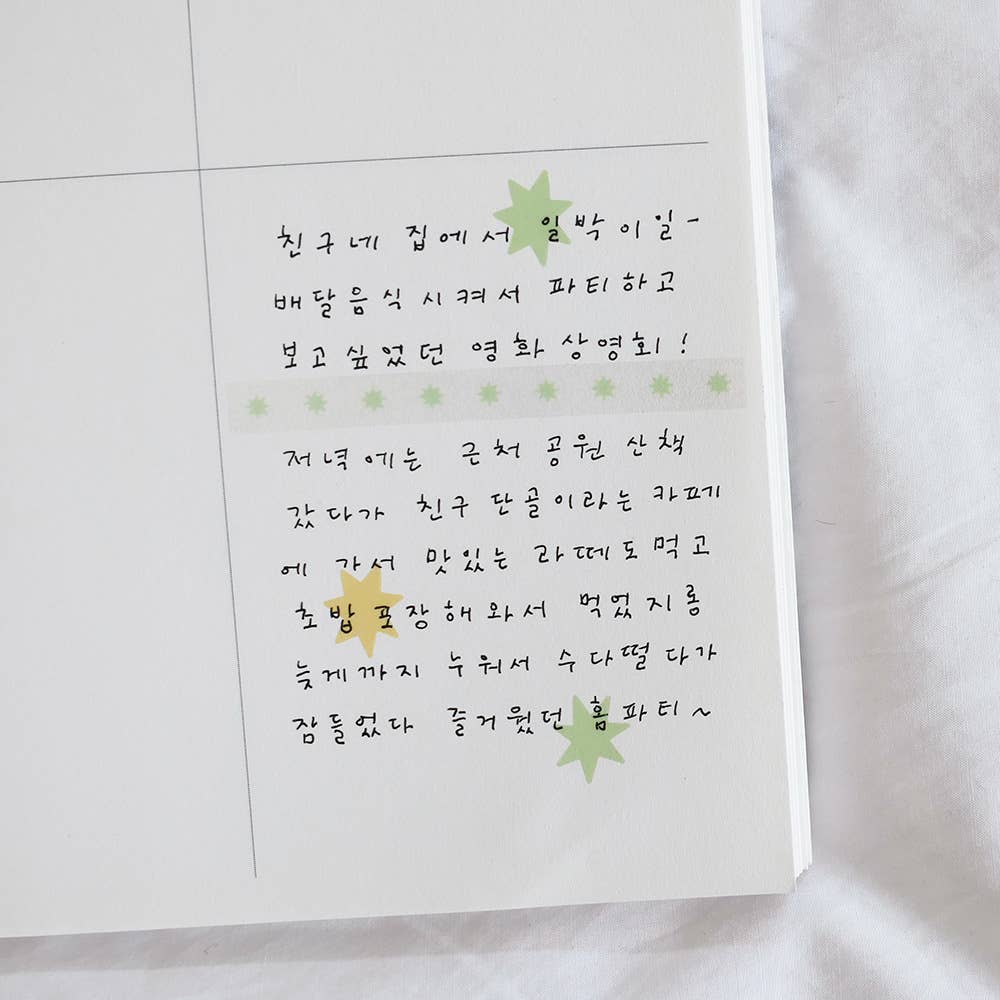 친구네 집에서 일박이일-
배달음식시켜서 파티하고
보고싶었던 영화상영회!
저녁에는 근처 공원 산책
갔다가 친구 단골이라는 카페
에 가서 맛있는 라떼도먹고
초밥포장해와서 먹었지롱
늦게까지 누워서 수다떨다가
잠들었다 즐거웠던 홈파티~